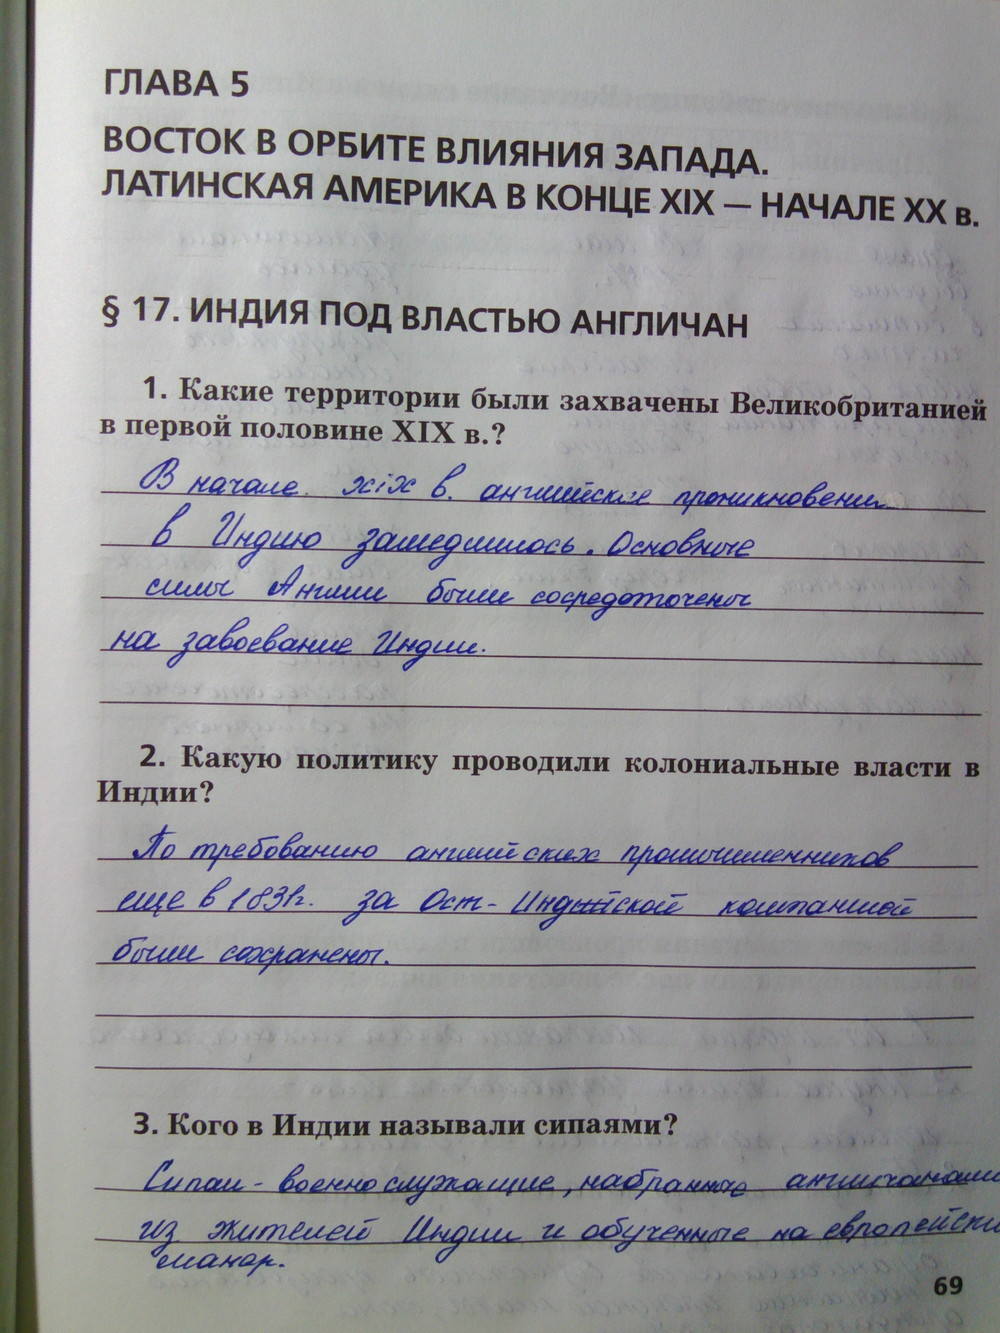 ГЛАВА 5
ВОСТОК В ОРБИТЕ ВЛИЯНИЯ ЗАПАДА.
ЛАТИНСКАЯ АМЕРИКА В КОНЦЕ XIX — НАЧАЛЕ XX в.
§ 17. ИНДИЯ ПОД ВЛАСТЬЮ АНГЛИЧАН
1. Какие территории были захвачены Великобританией
в первой половине XIX в.?
В начале XIX в. английское проникновени
в Индию замедлилось. Основные
силы Англии были сосредоточены
на завоевание Индии.
2. Какую политику проводили колониальные власти в
Индии?
По требованию английских промышленников
еще в 1831г. за Ост-Индийской компанией
были сохранены.
3. Кого в Индии называли сипаями?
Сипаи - военнослужащие, набранные англичанами
из жителей Индии и обученные на европейски
манер.
69